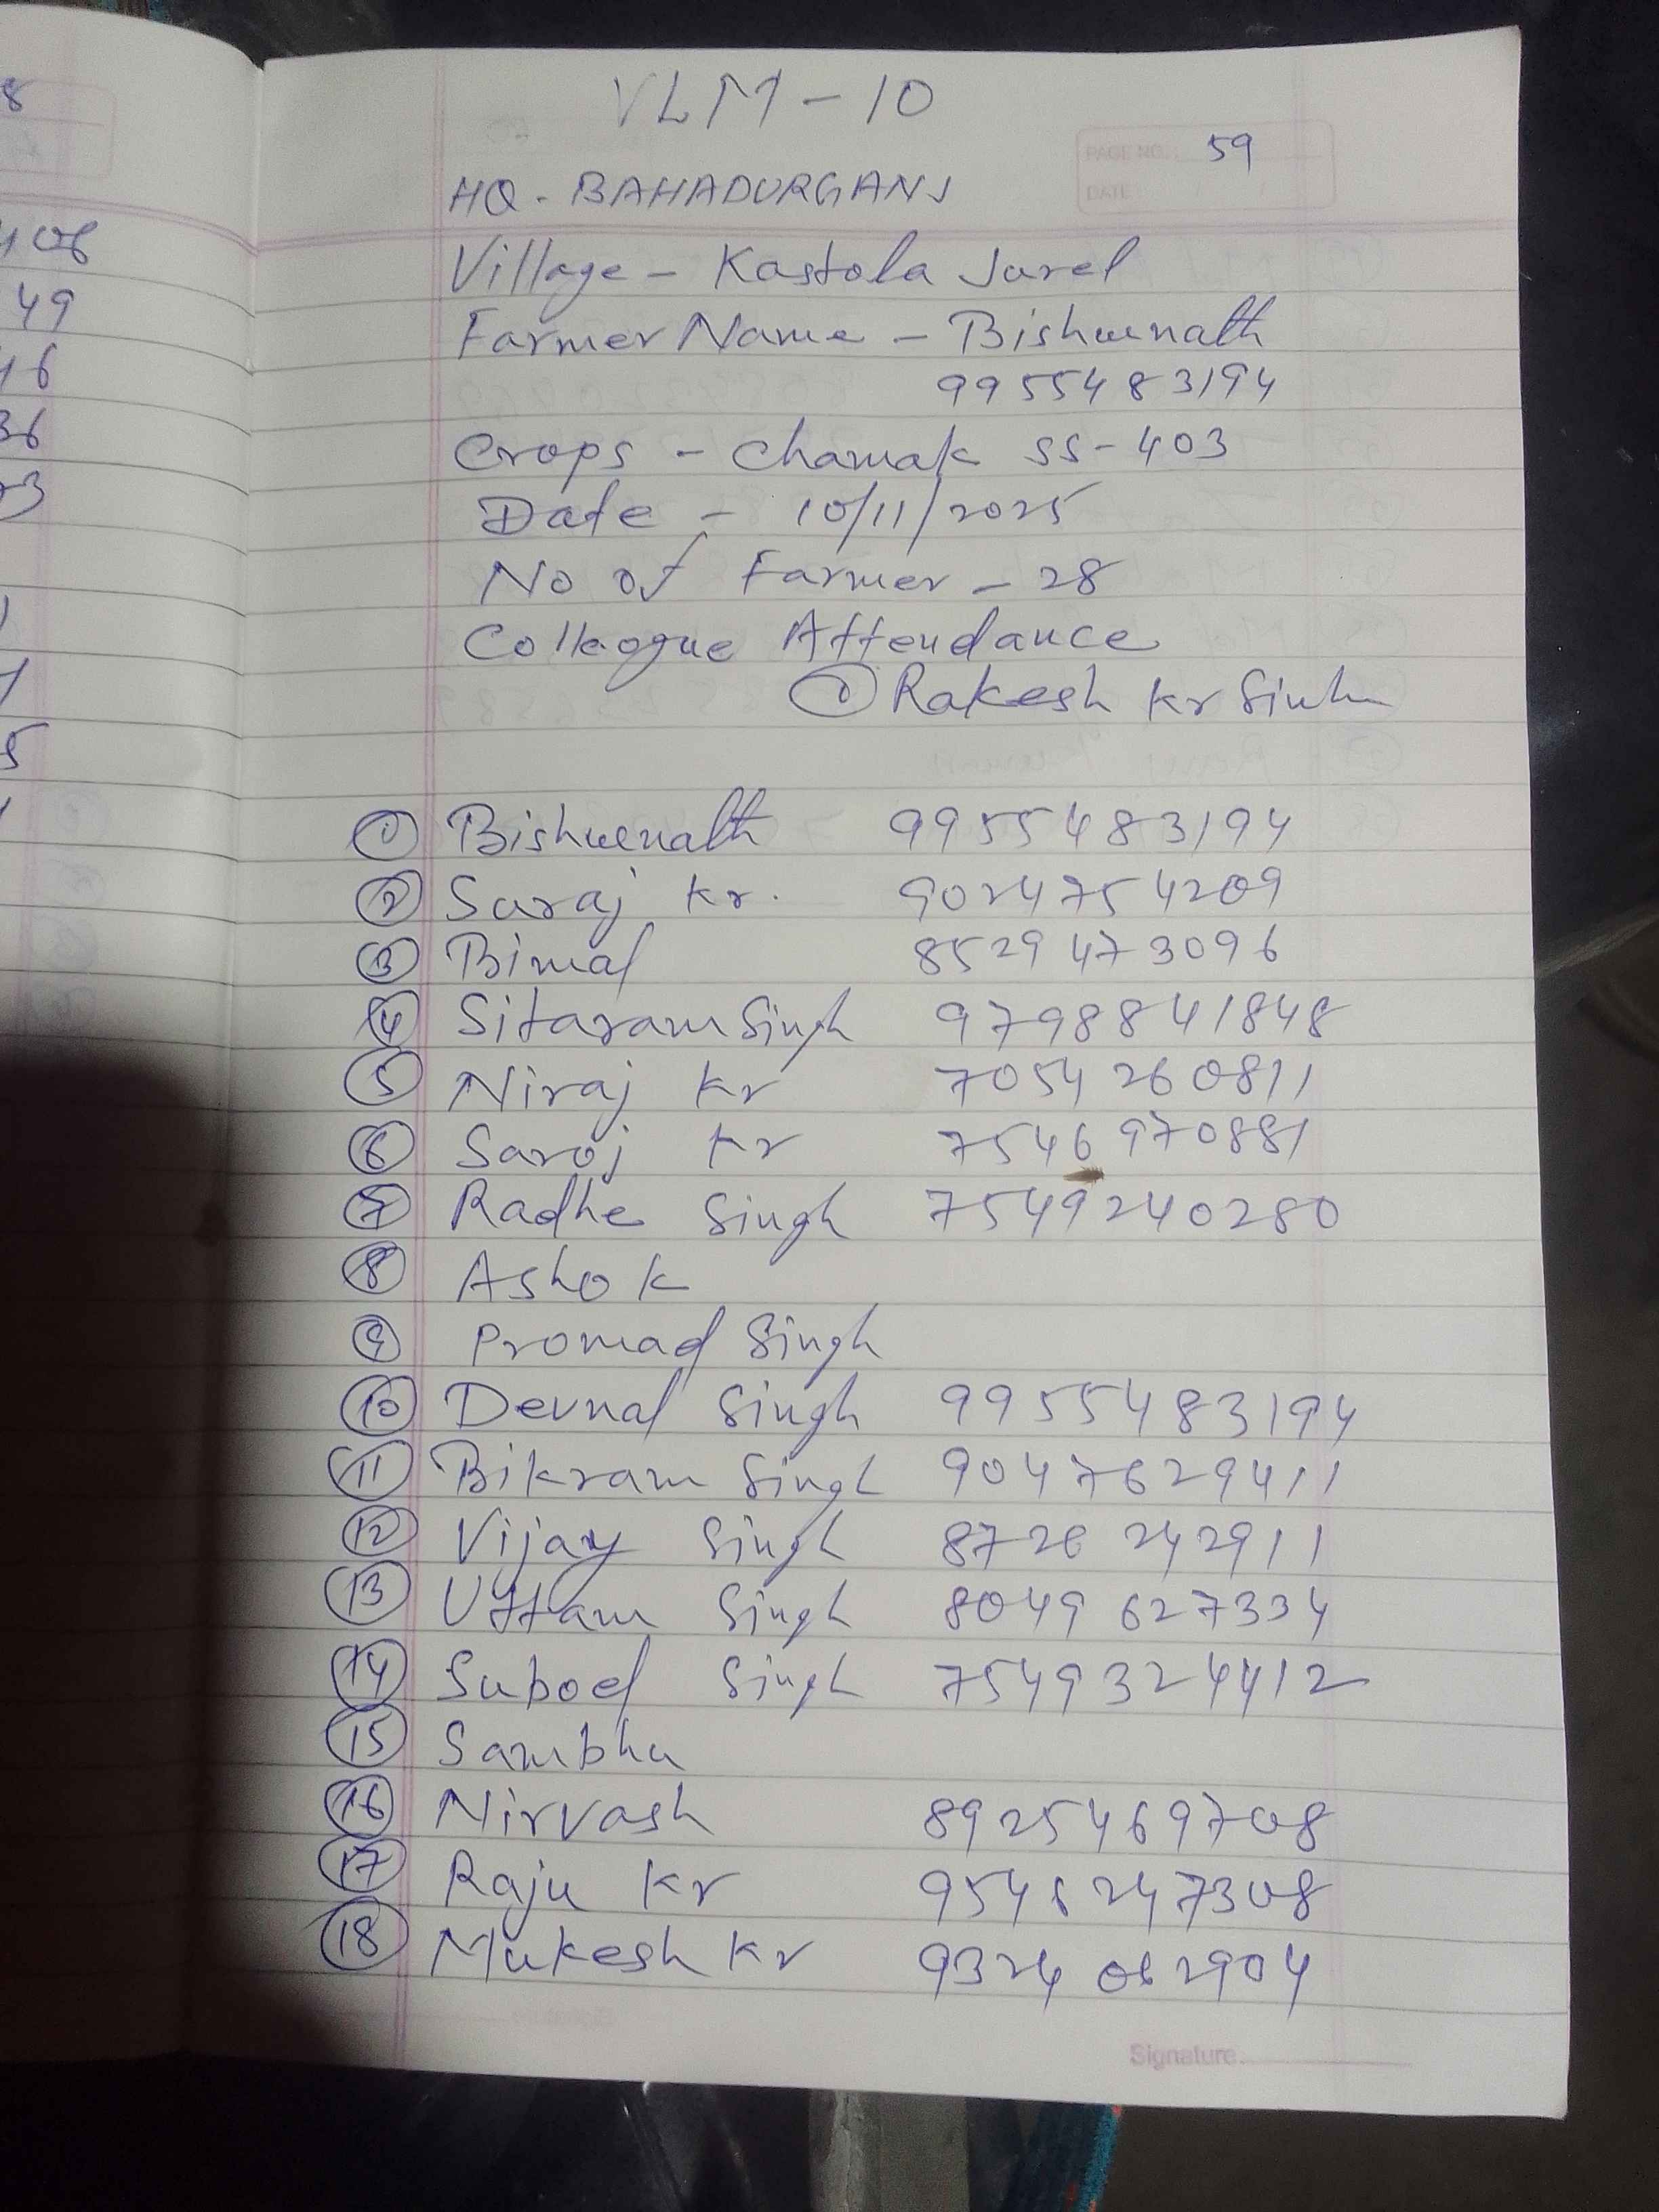 8
406
49
16
36
5
VLM - 10
PAGE NO.: 59
DATE
HQ - BAHADURGANJ
Village - Kastola Jurel
Farmer Name - Bishwenath
9955483194
Crops - Chamak SS-403
Date - 10/11/2025
No of Farmer - 28
Colleague Attendance
① Rakesh Kr Sinh
① Bishwenath 9955483194
② Suraj Kr. 9024754209
③ Bimal 8529473096
④ Sitaram Singh 9798841848
⑤ Niraj Kr 7054260811
⑥ Saroj Kr 7546970881
⑦ Radhe Singh 7549240280
⑧ Ashok
⑨ Promad Singh
⑩ Devnal Singh 9955483194
⑪ Bikram Singh 9047629411
⑫ Vijay Singh 8726242911
⑬ Uttam Singh 8049627334
⑭ Subod Singh 7549324412
⑮ Sambhu
⑯ Nirvash 8925469708
⑰ Raju Kr 9546247308
⑱ Mukesh Kr 9324062904
Signature